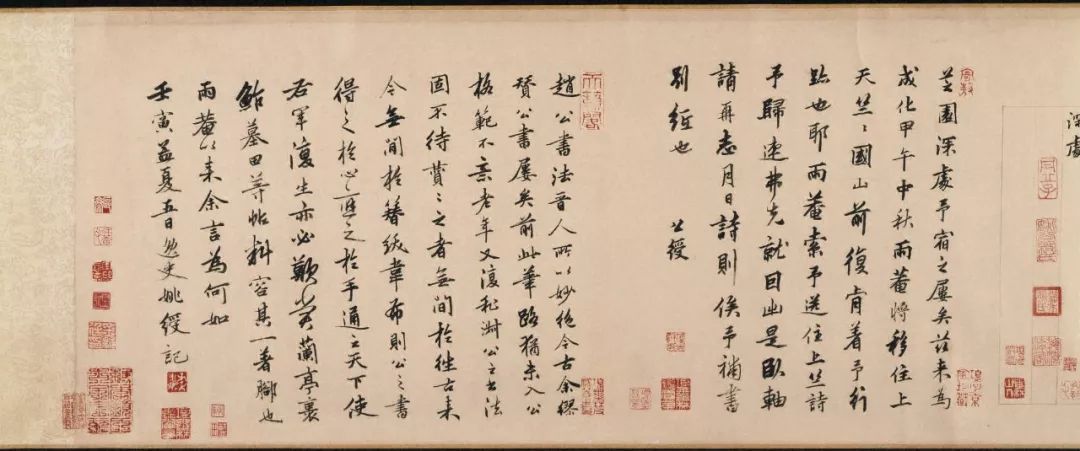 深處
芝園深處予宿之屢矣茲來為
成化甲午中秋雨菴將移住上
天竺〻國山前復肯着予行
跡也耶雨菴索予送住上竺詩
予歸速弗克就因出是臥軸
請再志月日詩則俟予補書
別紙也 公綬
趙公書法晉人所以妙絕今古余繆
贊公書屢矣前此華路猶未入公
格範不意老年又復公之書法
固不待贊〻之者無間於往古來
今無間於簪紱韋布則公之書
得之於心運之於手通之天下使
右軍復生亦必歎賞蘭亭裹
鮓墓田等帖料容其一著腳也
雨菴以來余言為何如
壬寅孟夏五日逸史姚綬記